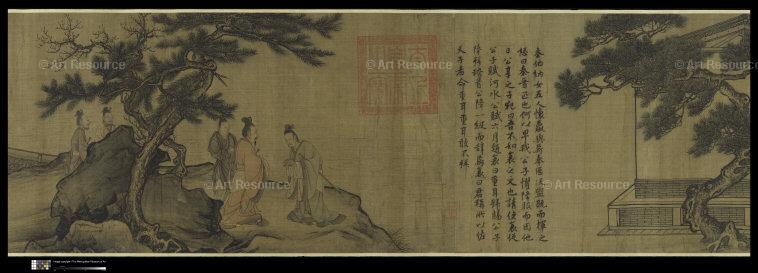 秦伯納女五人懷嬴與焉奉匜沃盥既而揮之
怒曰秦晉匹也何以卑我公子懼降服而囚他
日公享之子犯曰吾不如衰之文也請使衰從
公子賦河水公賦六月趙衰曰重耳拜賜公子
降拜稽首公降一級而辭焉衰曰君稱所以佐
天子者命重耳重耳敢不拜
© Art Resource
© Art Resource
© Art Resource
© Art Resource
© Art Resource
© Art Resource
© Art Resource
© Art Resource